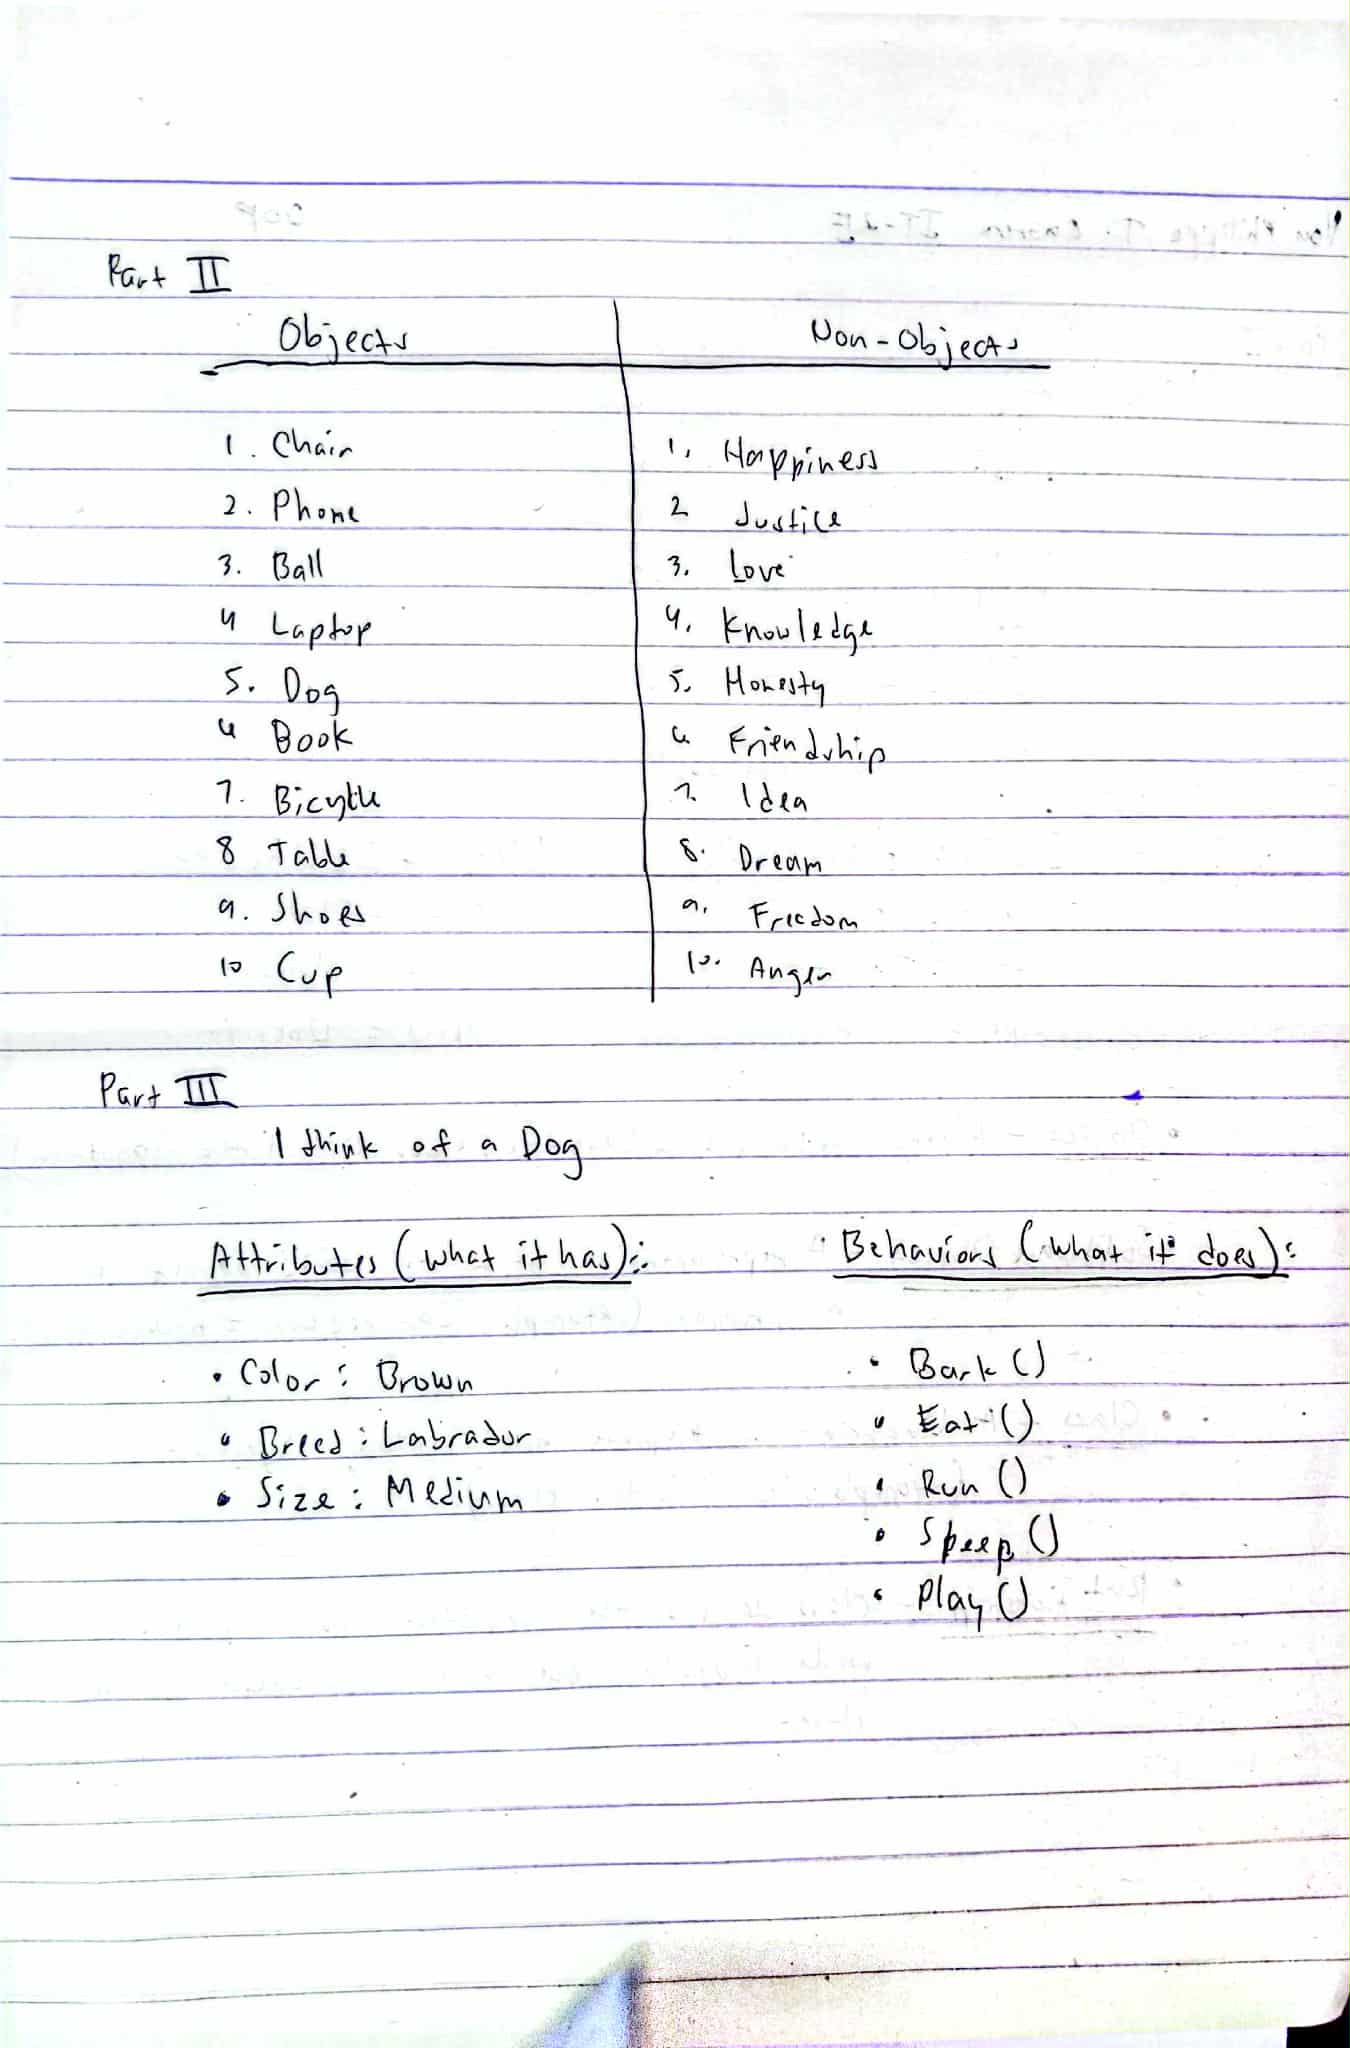 Part II
Objects Non-Objects
1. Chair 1. Happiness
2. Phone 2 Justice
3. Ball 3. Love
4 Laptop 4. Knowledge
5. Dog 5. Honesty
6 Book 6 Friendship
7. Bicytle 7. Idea
8 Table 8. Dream
9. Shoes 9. Freedom
10 Cup 10. Anger
Part III
I think of a Dog
Attributes (what it has): Behaviors (what it does):
• Color: Brown • Bark ()
• Breed: Labrador • Eat ()
• Size: Medium • Run ()
• Speep ()
• Play ()